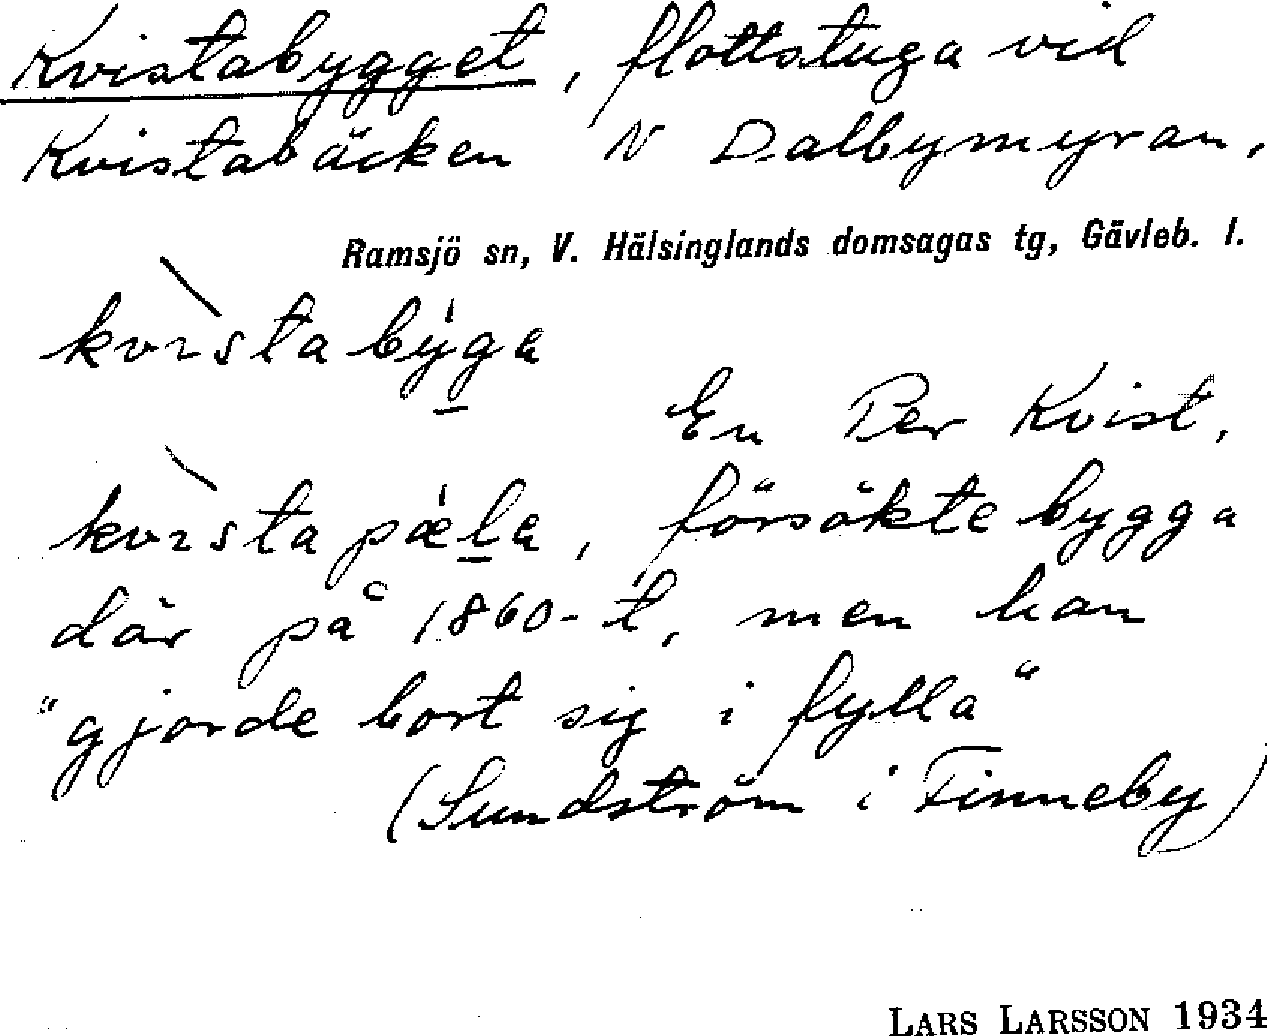 Kvistabygget, flottstuga vid
Kvistabäcken N Dalbymyran,
Ramsjö sn, V. Hälsinglands domsagas tg, Gävleb. l.
kvɩ̀stabýga
En Per Kvist,
kvɩ̀stapǽla, försökte bygga
där på 1860-t, men han
"gjorde bort sig i fylla"
(Sundström i Finneby)
LARS LARSSON 1934